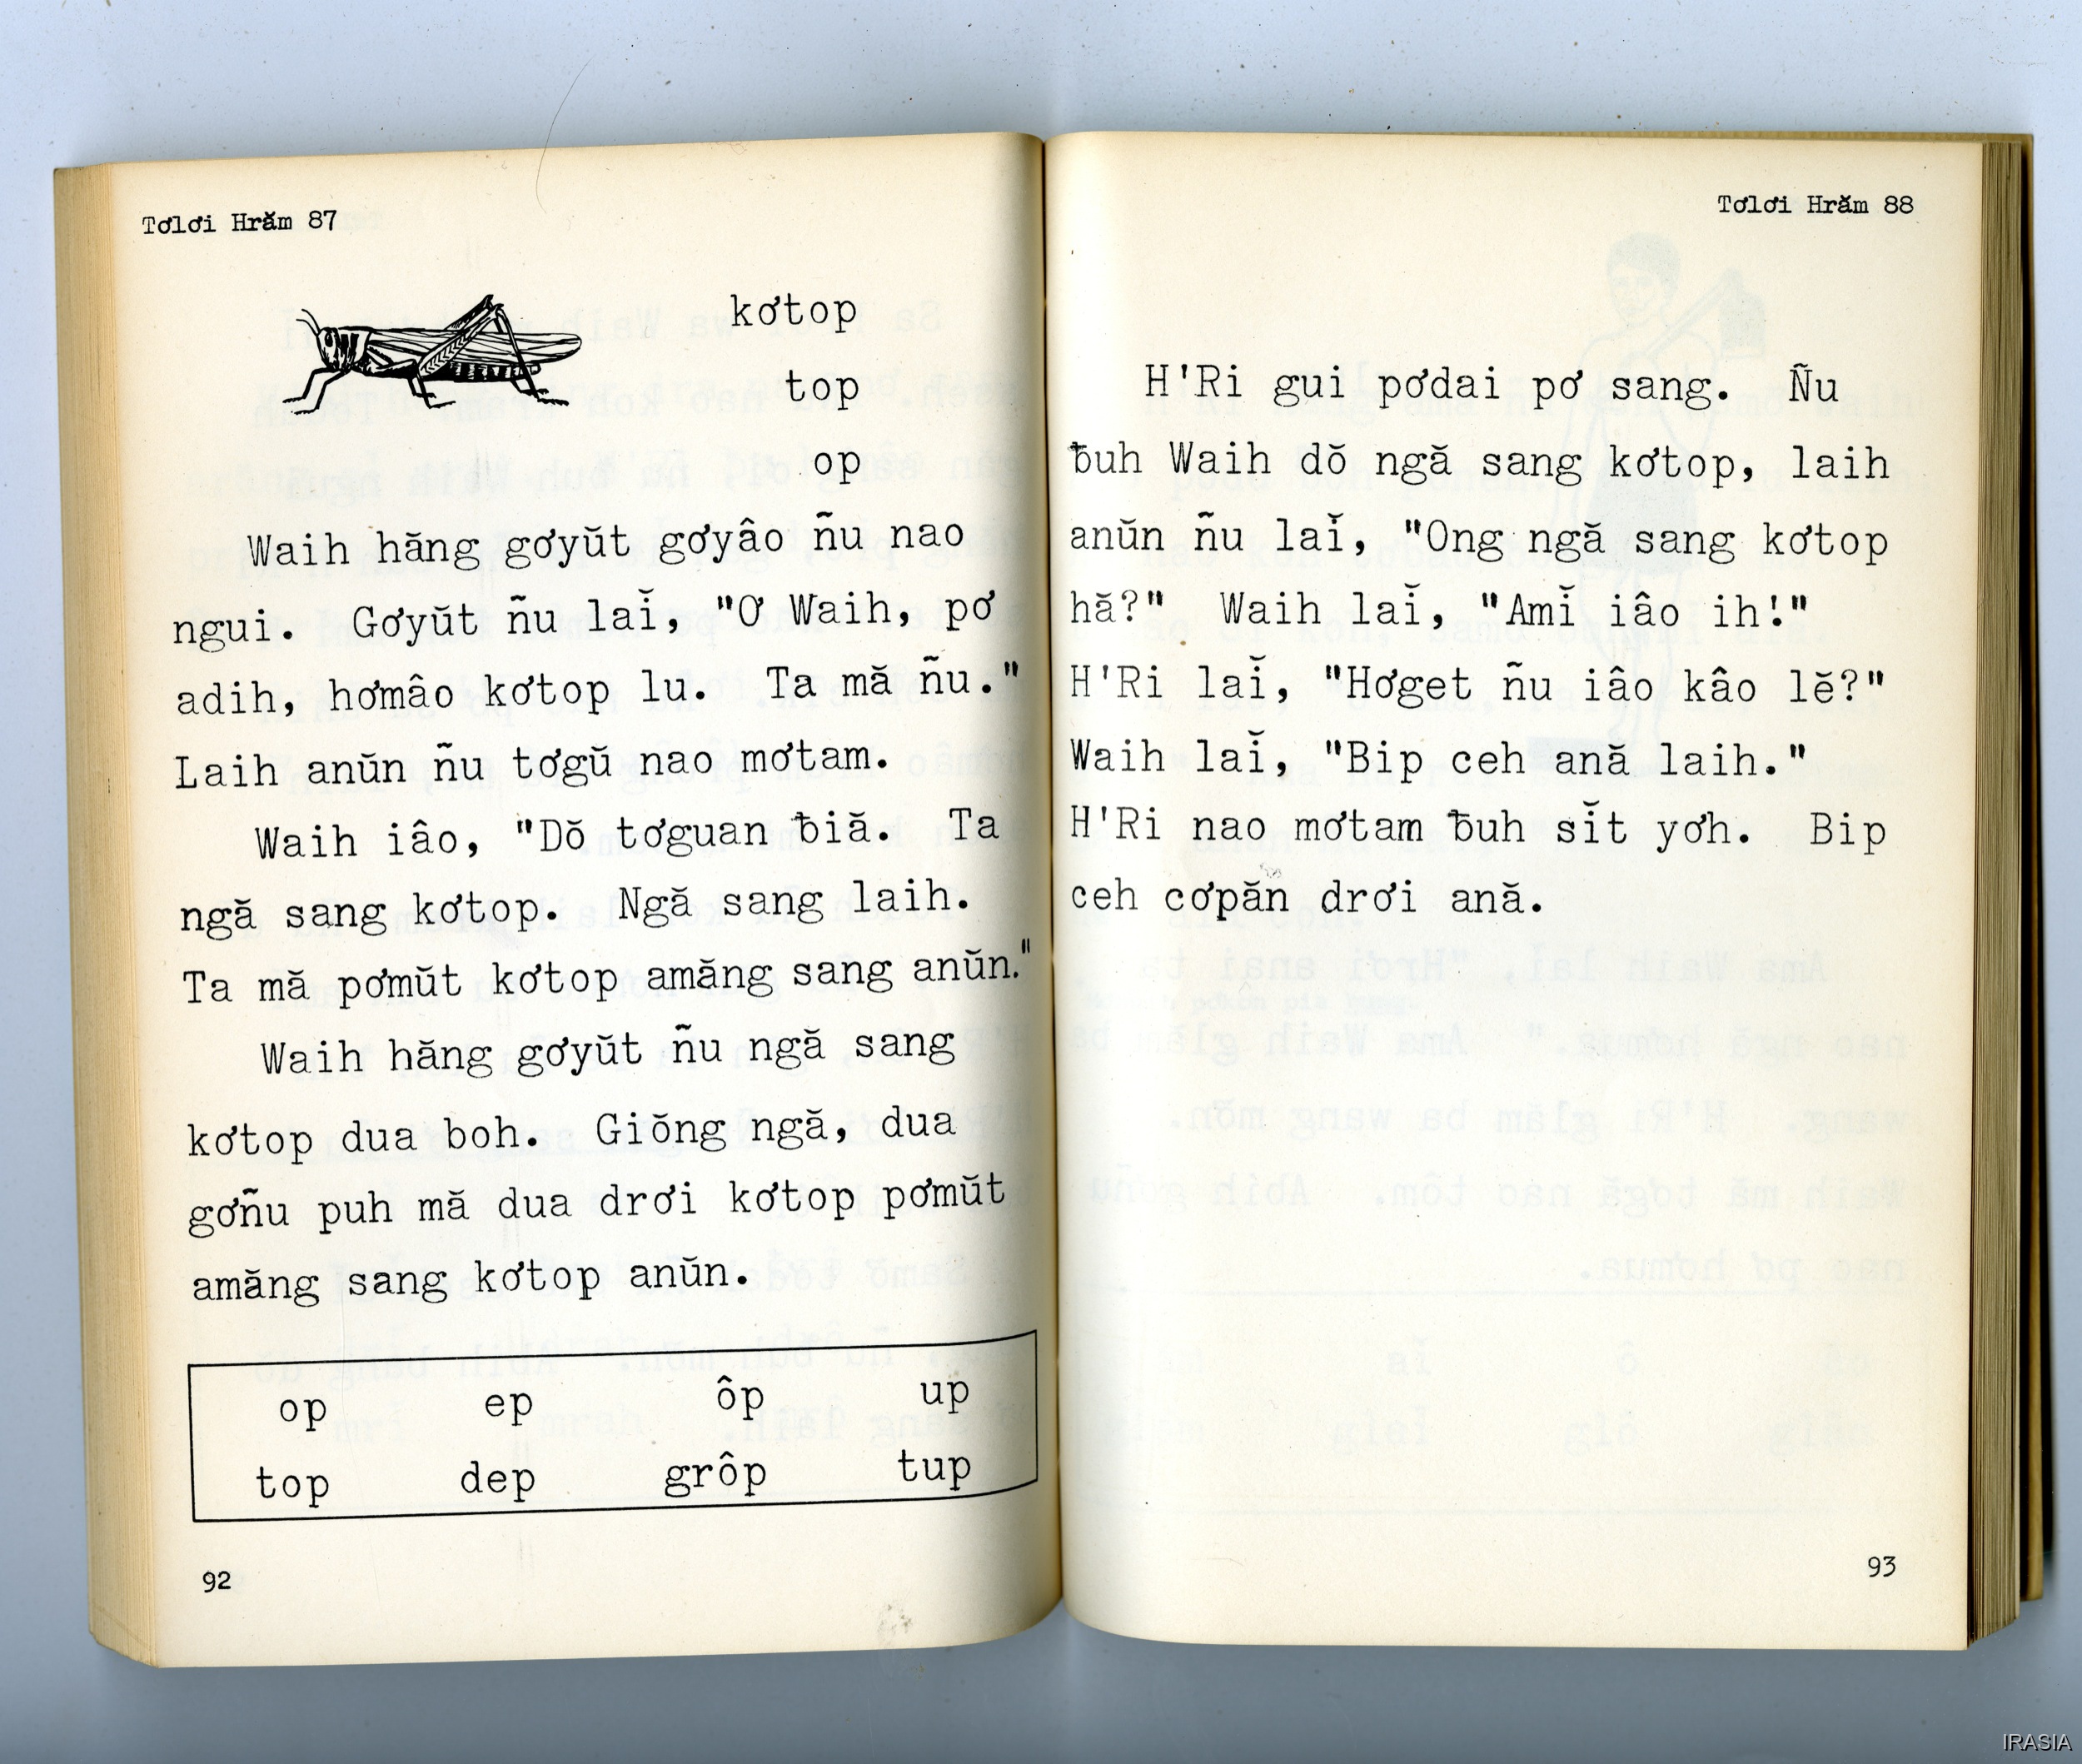 Tơlơi Hrăm 87
kơtop
top
op
Waih hăng gơyŭt gơyâo ñu nao
ngui. Gơyŭt ñu laĭ, "Ơ Waih, pơ
adih, hơmâo kơtop lu. Ta mă ñu."
Laih anŭn ñu tơgŭ nao mơtam.
Waih iâo, "Dŏ tơguan ƀiă. Ta
ngă sang kơtop. Ngă sang laih.
Ta mă pơmŭt kơtop amăng sang anŭn."
Waih hăng gơyŭt ñu ngă sang
kơtop dua boh. Giŏng ngă, dua
gơñu puh mă dua drơi kơtop pơmŭt
amăng sang kơtop anŭn.
op ep ôp up
top dep grôp tup
92
Tơlơi Hrăm 88
H'Ri gui pơdai pơ sang. Ñu
ƀuh Waih dŏ ngă sang kơtop, laih
anŭn ñu laĭ, "Ong ngă sang kơtop
hă?" Waih laĭ, "Amĭ iâo ih!"
H'Ri laĭ, "Hơget ñu iâo kâo lĕ?"
Waih laĭ, "Bip ceh ană laih."
H'Ri nao mơtam ƀuh sĭt yơh. Bip
ceh cơpăn drơi ană.
93
IRASIA